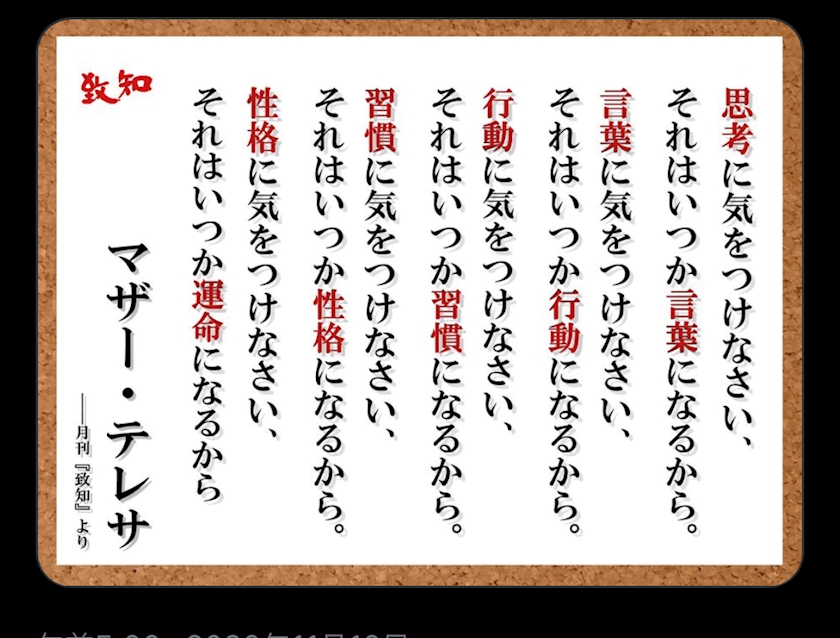 思考に気をつけなさい、
それはいつか言葉になるから。
言葉に気をつけなさい、
それはいつか行動になるから。
行動に気をつけなさい、
それはいつか習慣になるから。
習慣に気をつけなさい、
それはいつか性格になるから。
性格に気をつけなさい、
それはいつか運命になるから
マザー・テレサ
――月刊『致知』より
致知